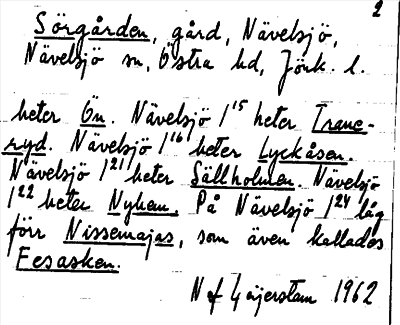 2
Sörgården, gård, Nävelsjö,
Nävelsjö sn, Östra hd, Jönk. l.
heter Ön. Nävelsjö 1¹⁵ heter Trane-
ryd. Nävelsjö 1¹⁶ heter Lyckåsen.
Nävelsjö 1²¹ heter Sällholmen. Nävelsjö
1²² heter Nyhem. På Nävelsjö 1²⁴ låg
förr Nissemajas, som även kallades
Fesasken.
N af Geijerstam 1962